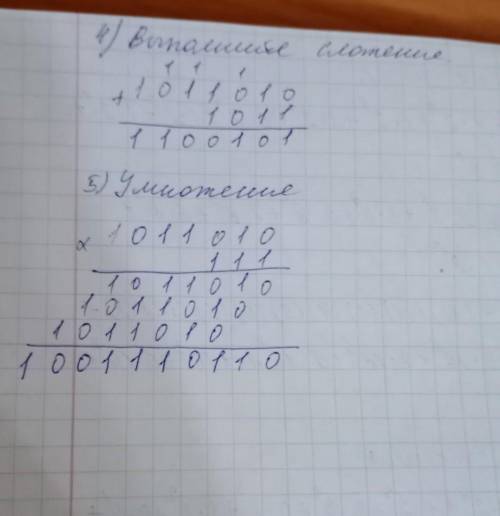 4) Выполните сложение
1 1 1
+ 1 0 1 1 0 1 0
1 0 1 1
1 1 0 0 1 0 1
5) Умножение
x 1 0 1 1 0 1 0
1 1 1
1 0 1 1 0 1 0
1 0 1 1 0 1 0
1 0 1 1 0 1 0
1 0 0 1 1 1 0 1 1 0